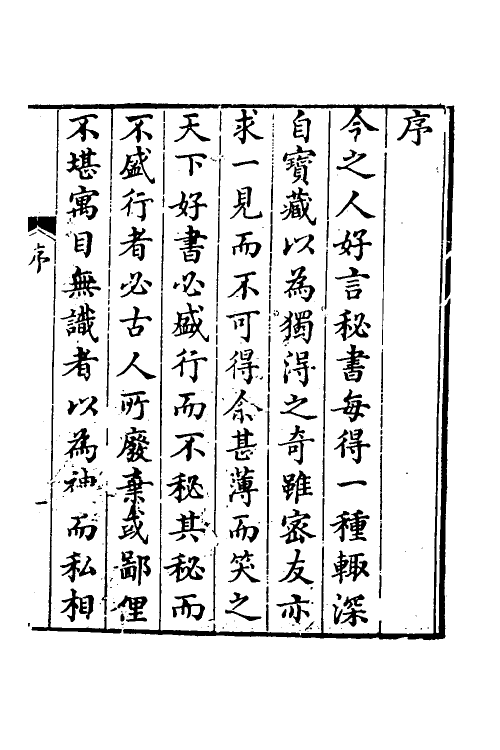 序
今之人好言秘書每得一種輙深
自寶藏以為獨得之奇雖密友亦
求一見而不可得余甚薄而笑之
天下好書必盛行而不秘其秘而
不盛行者必古人所廢棄或鄙俚
不堪寓目無識者以為神而私相
序
一